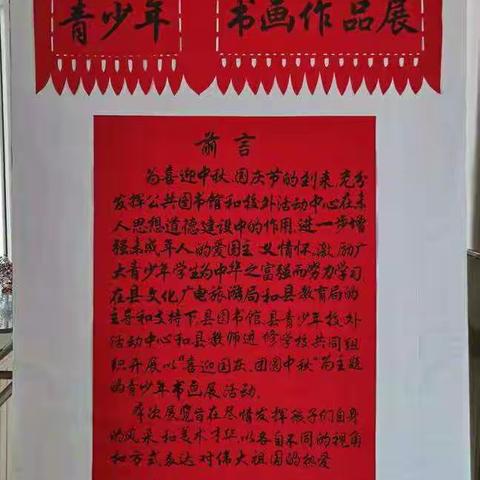 青少年 书画作品展
前言
为喜迎中秋、国庆节的到来,充分
发挥公共图书馆和校外活动中心在未
人思想道德建设中的作用,进一步增
强未成年人的爱国主义情怀,激励广
大青少年学生为中华之富强而努力学习
在县文化广电旅游局和县教育局的
主导和支持下,县图书馆、县青少年校外
活动中心和县教师进修学校共同组
织开展以“喜迎国庆、团圆中秋”为主题
的青少年书画展活动。
本次展览旨在尽情发挥孩子们自身
的风采和美术才华,以各自不同的视角
和方式表达对伟大祖国的热爱